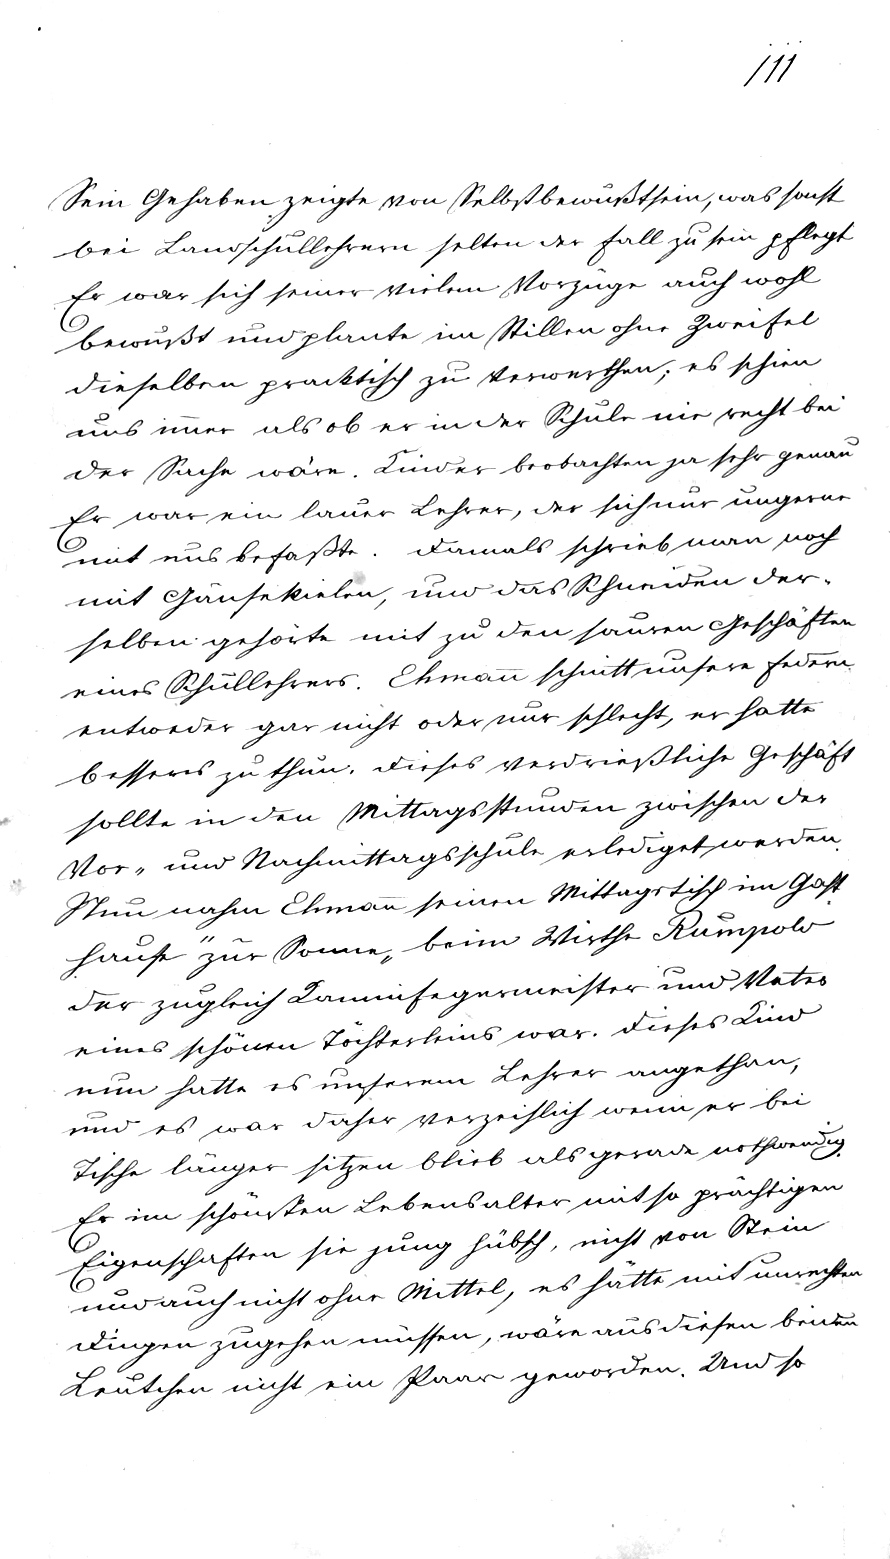 111
Sein Gehaben zeigte von Selbstbewußtsein, was sonst
bei Landschullehrern selten der Fall zu sein pflegt
Er war sich seiner vielen Vorzüge auch wohl
bewußt und plante im Stillen ohne Zweifel
dieselben practtisch zu verwerthen; es schien
uns im̅er als ob er in der Schule nie recht bei
der Sache wäre. Kinder beobachten ja sehr genau
Er war ein lauer Lehrer, der sich nur ungerne
mit uns befaßte. Damals schrieb man noch
mit Gänsekielen, und das Schneiden der-
selben gehörte mit zu den sauren Geschäften
eines Schullehrers. Ehman̅ schnitt unsere Federn
entweder gar nicht oder nur schlecht, er hatte
besseres zu thun. Dieses verdrießliche Geschäft
sollte in den Mittagsstunden zwischen der
Vor- und Nachmittagsschule erlediget werden.
Nun nahm Ehman̅ seinen Mittagstisch im Gast
hause "zur Sonne„ beim Wirthe Rumpold
der zugleich Kaminfegermeister und Vater
eines schönen Töchterleins war. Dieses Kind
nun hatte es unserem Lehrer angethan,
und es war daher verzeihlich wenn er bei
Tische länger sitzen blieb als gerade nothwendig.
Er im schönsten Lebensalter mit so prächtigen
Eigenschaften sie jung hübsch, nicht von Stein
und auch nicht ohne Mittel, es hätte mit unrechten
Dingen zugehen müssen, wäre aus diesen beiden
Leutchen nicht ein Paar geworden. Und so